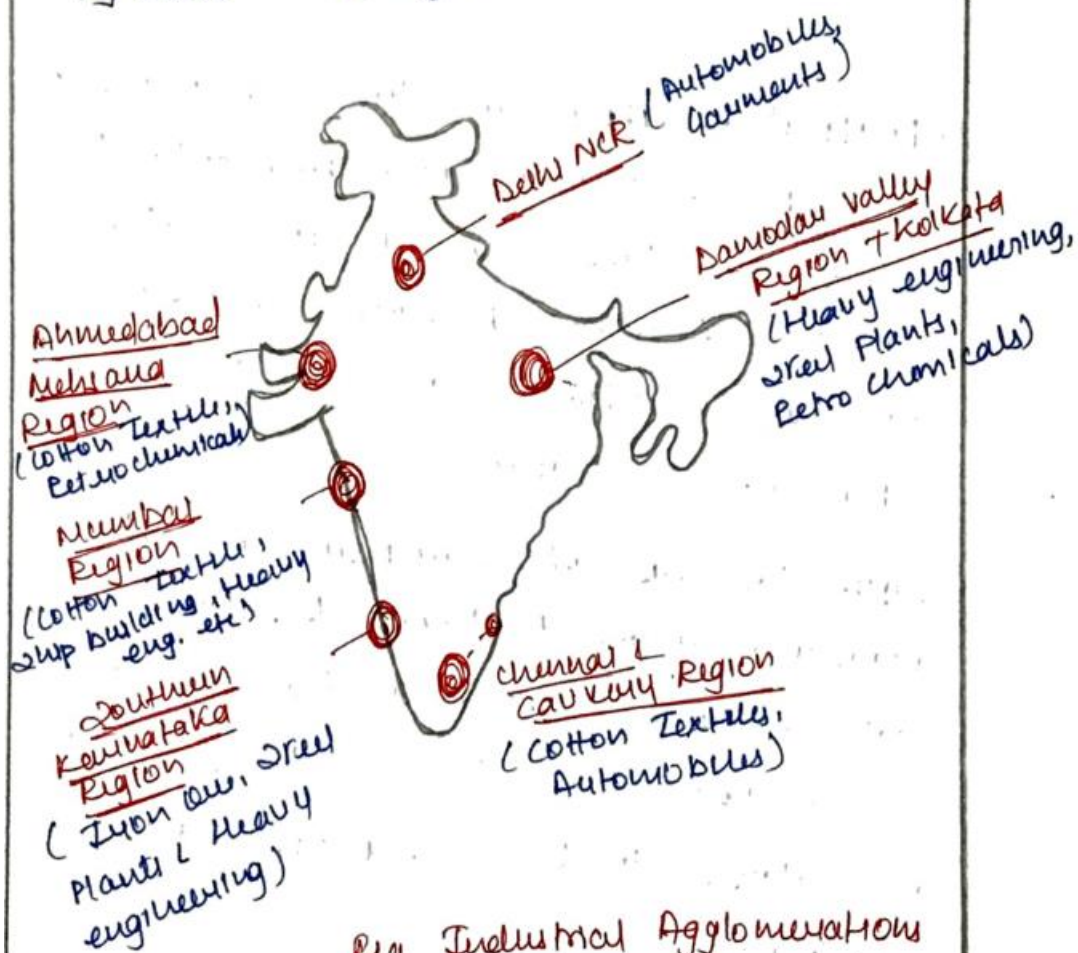 Delhi NCR
(Automobiles,
Garments)
Damodar Valley
Region + Kolkata
(Heavy engineering,
Steel Plants,
Petro chemicals)
Ahmedabad
Mehsana
Region
(Cotton Textile,
Petrochemicals)
Mumbai
Region
(Cotton Textile,
Ship building, Heavy
eng. etc)
Southern
Karnataka
Region
(Iron Ore, Steel
Plants & Heavy
engineering)
Chennai &
Cauvery Region
(Cotton Textiles,
Automobiles)
Industrial Agglomerations